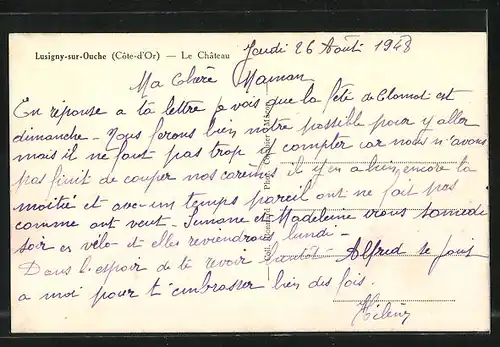 Lusigny-sur-Ouche (Côte-d'Or) — Le Château
Jeudi 26 Août 1948
Ma Chère Maman
En réponse a ta lettre je vois que la fête de Clomot est
dimanche - Nous ferons bien notre possible pour y aller
mais il ne faut pas trop y compter car nous n'avons
pas finit de couper nos il y en a bien encore la
moitié et avec un temps pareil ont ne fait pas
comme ont veut. et Madeleine irons samedi
soir en vélo et elles reviendrons lundi -
Dans l'espoir de te revoir bientôt Alfred se joint
a moi pour t'embrasser bien des fois.
Hélène